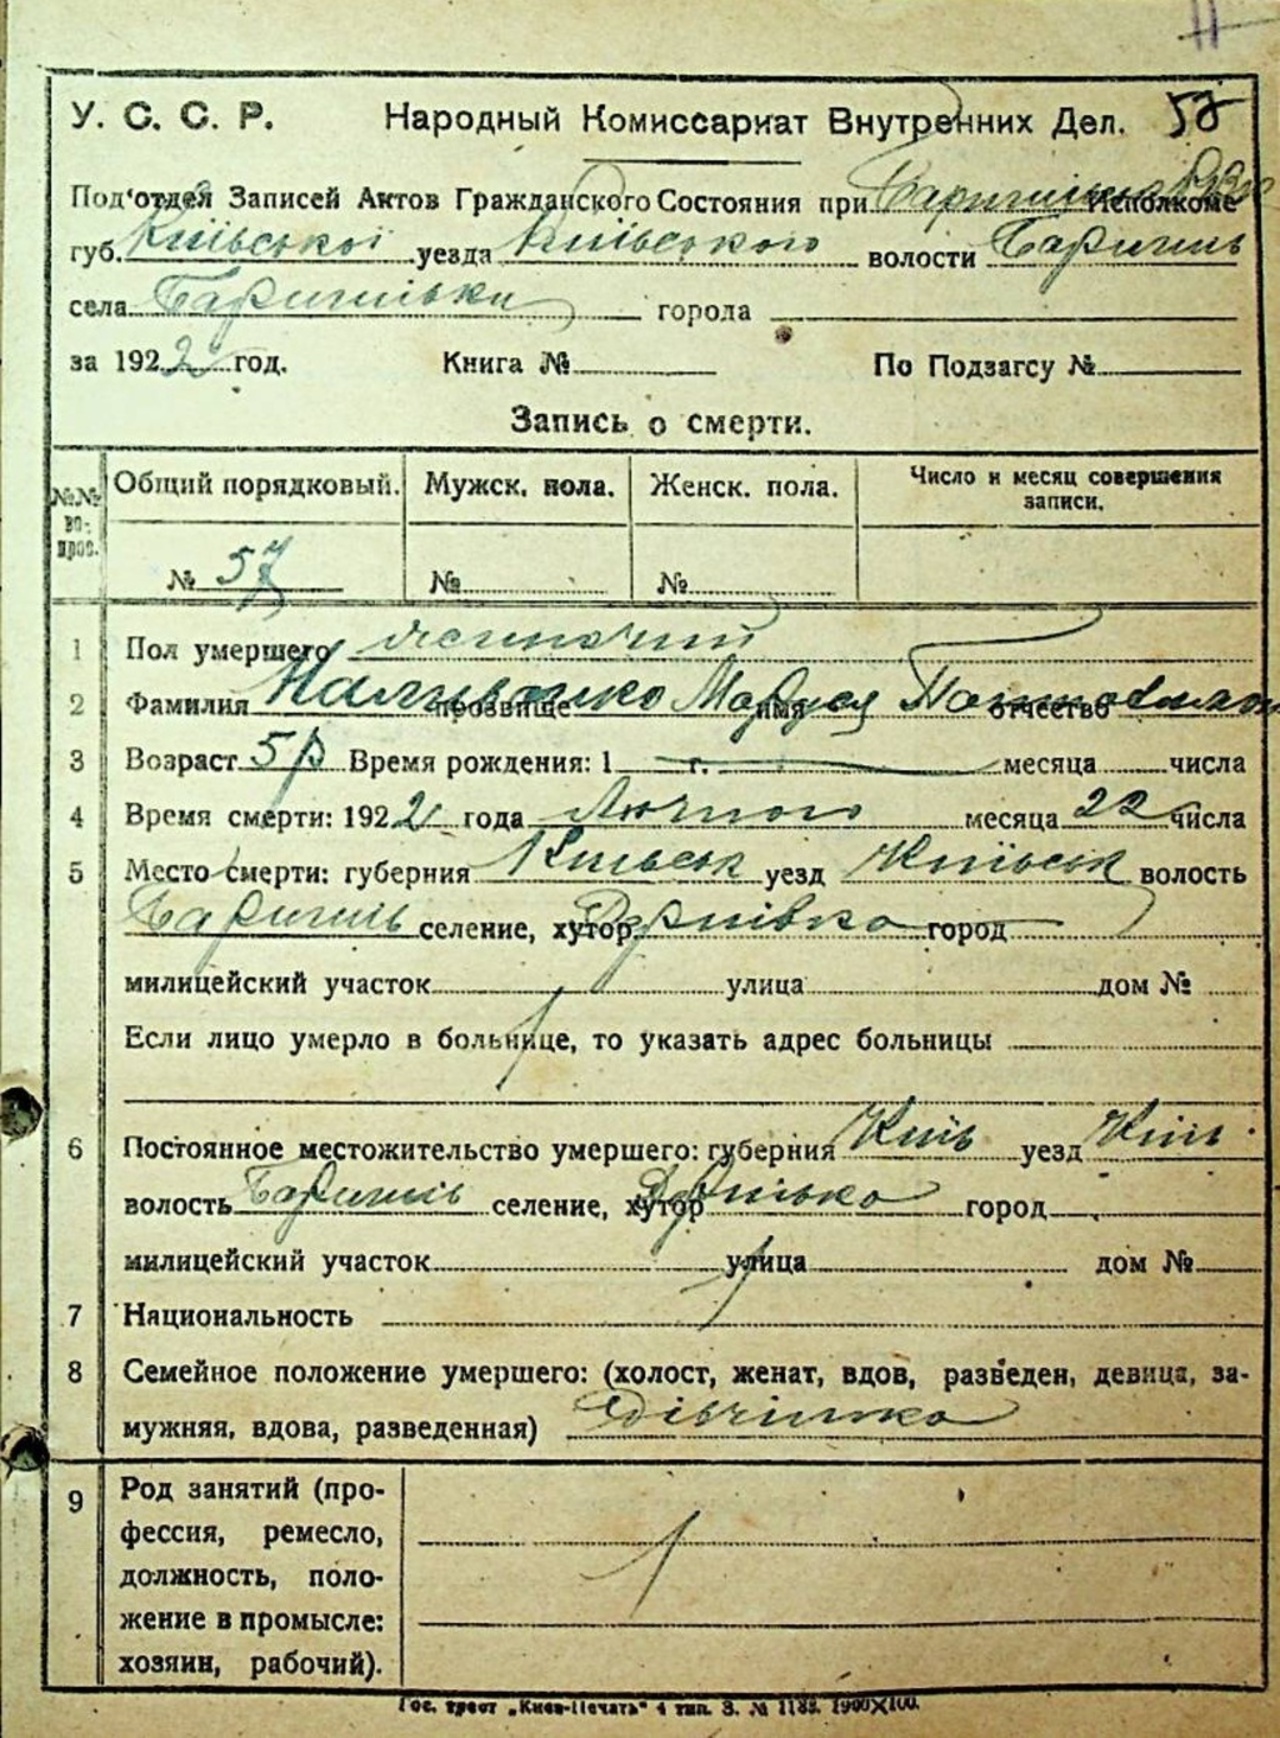 У. С. С. Р. Народный Комиссариат Внутренних Дел. 57
Под'отдел Записей Актов Гражданского Состояния при Исполкоме
губ. Київської уезда Київського волости Баришль
села Баришівки города
за 1922 год. Книга № По Подзагсу №
Запись о смерти.
№№ вопрос. Общий порядковый. Мужск. пола. Женск. пола. Число и месяц совершения записи.
№ 57 № №
1 Пол умершего жиночий
2 Фамилия Наливайко прозвище Маруся имя отчество
3 Возраст 5 р Время рождения: 1 г. месяца числа
4 Время смерти: 1922 года Лютого месяца 22 числа
5 Место смерти: губерния Київськ уезд Київськ волость
Баришль селение, хутор Дернівка город
милицейский участок улица дом №
Если лицо умерло в больнице, то указать адрес больницы
6 Постоянное местожительство умершего: губерния Київ уезд Київ
волость Баришль селение, хутор Дернівка город
милицейский участок улица дом №
7 Национальность
8 Семейное положение умершего: (холост, женат, вдов, разведен, девица, за-
мужняя, вдова, разведенная) Дівчинка
9 Род занятий (про-
фессия, ремесло,
должность, поло-
жение в промысле:
хозяин, рабочий).
Гос. трест „Киев-Печать" 4 тип. З. № 1183. 1900×100.